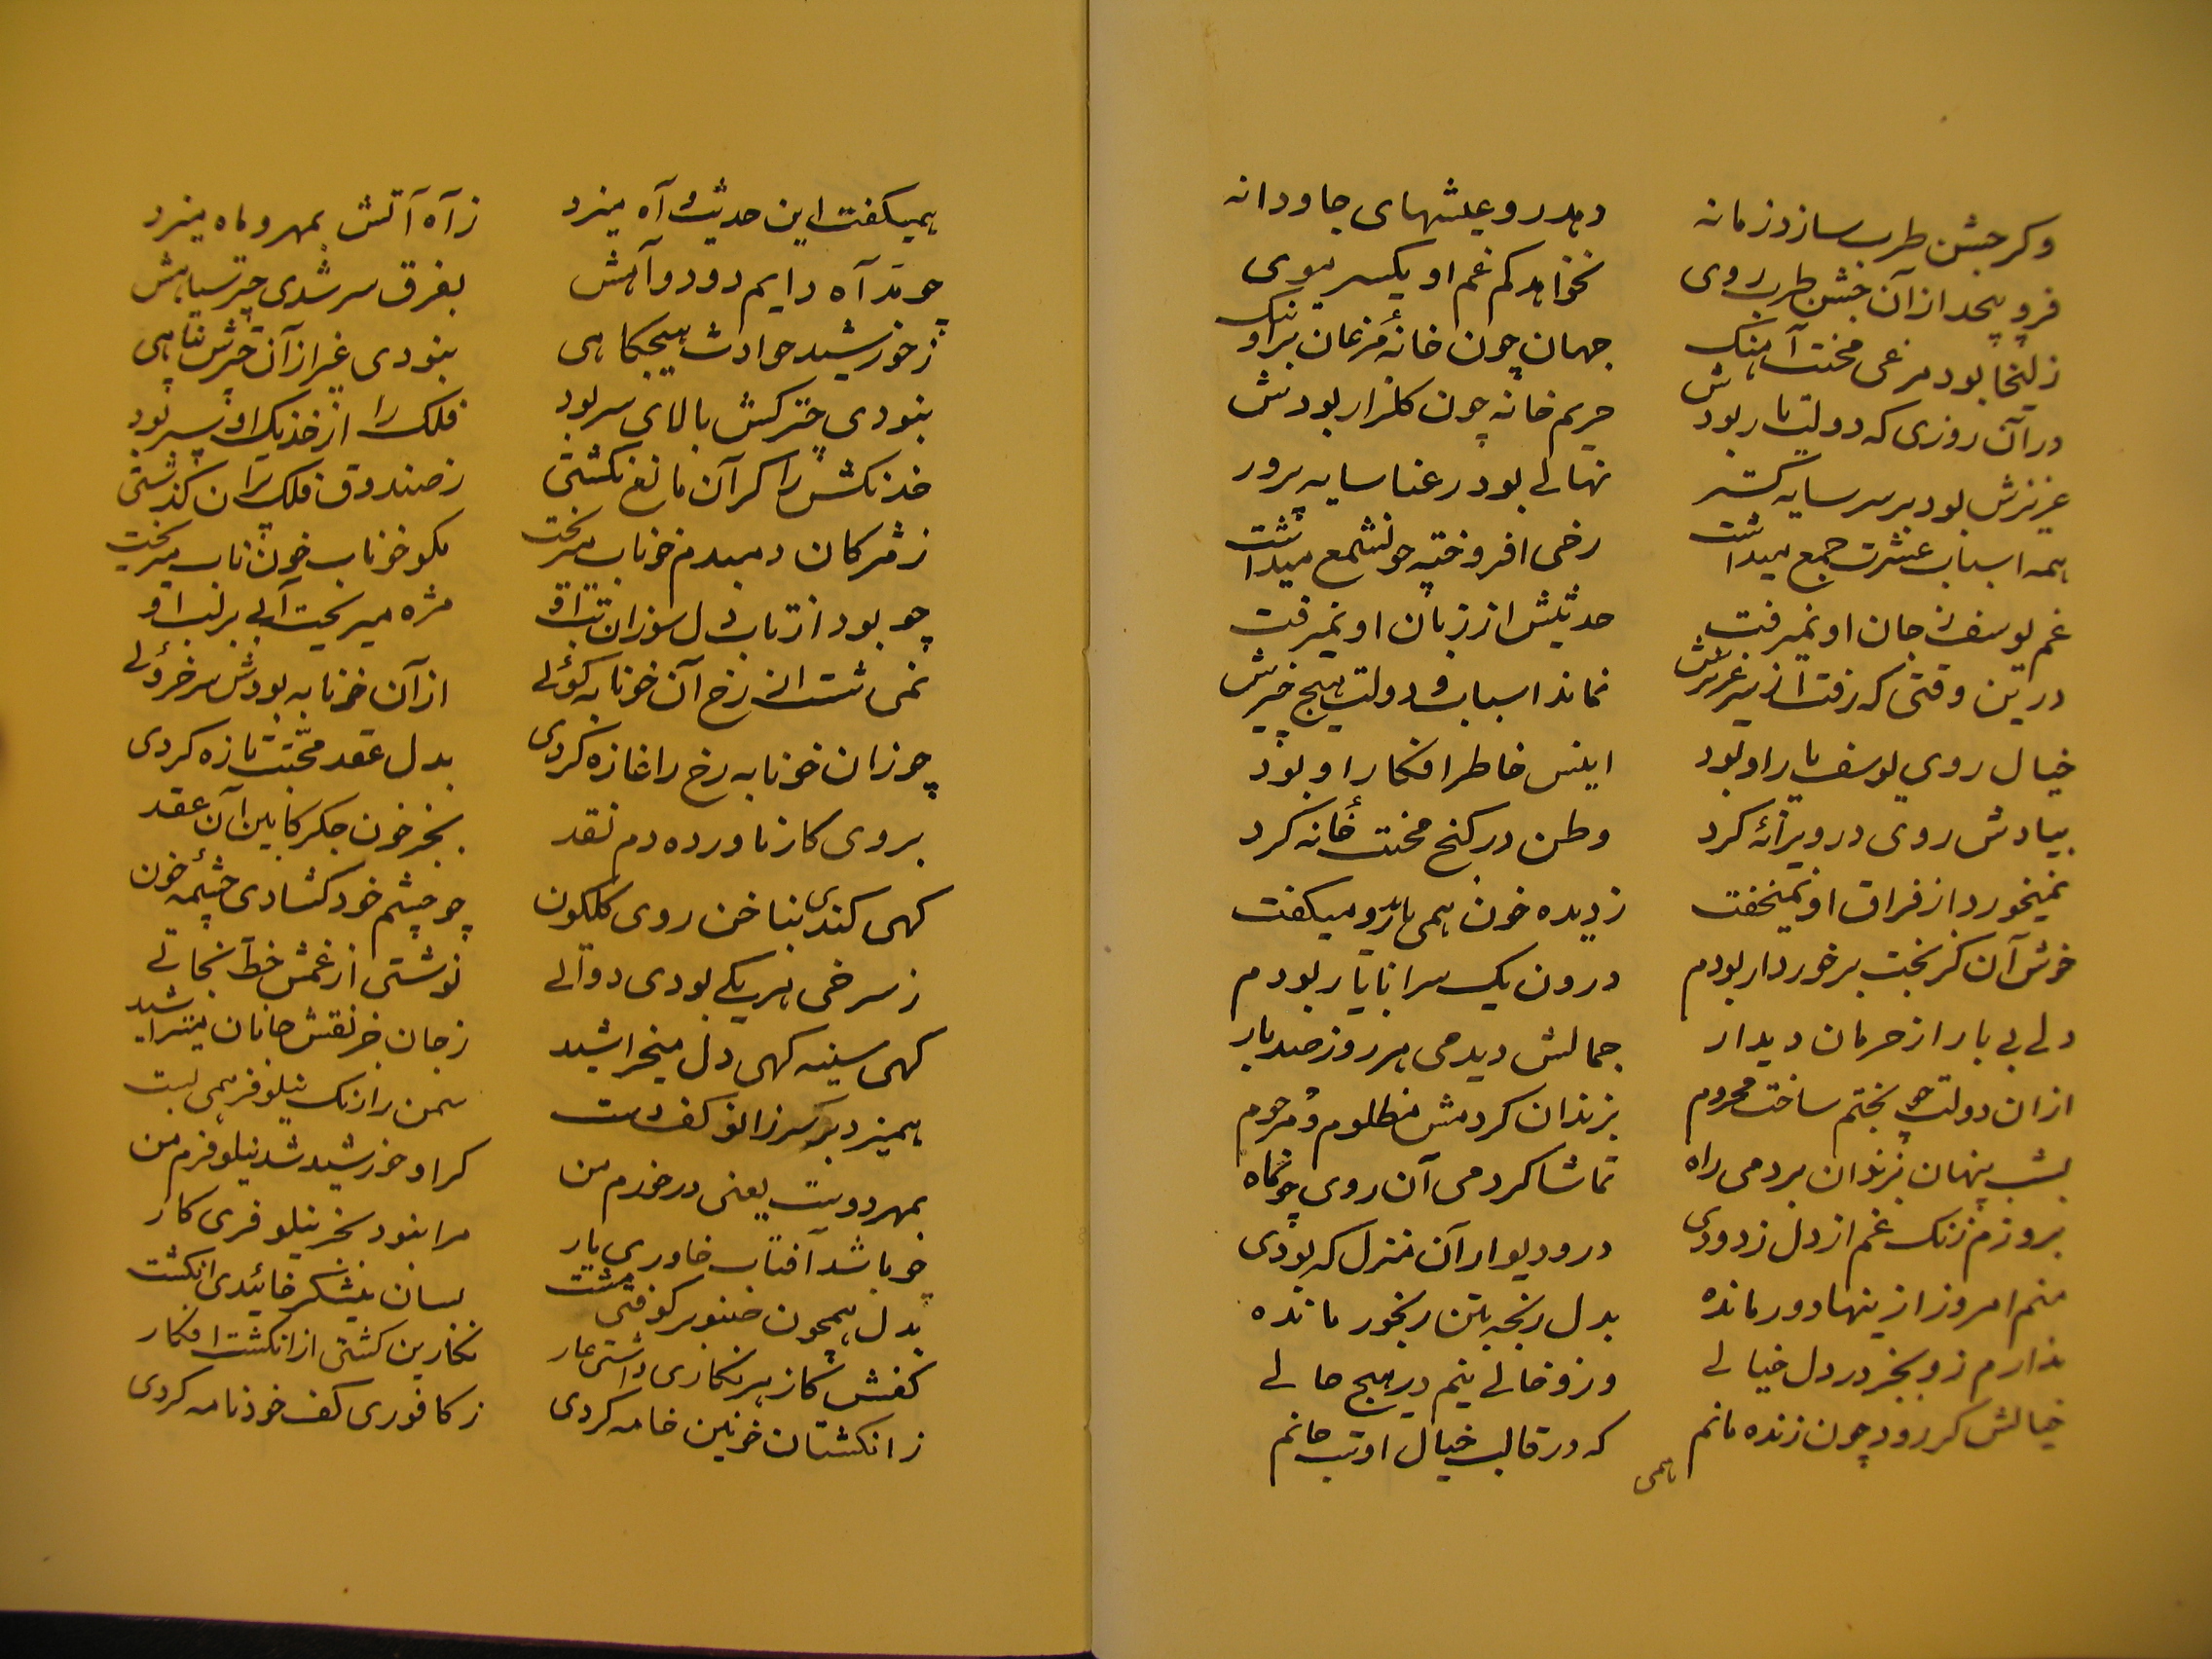 وکر جشن طرب سازد زمانه دهد رو عیشهای جاودانه
فرو پیچد از آن جشن طرب روی نخواهد کم غم او یکسر موی
زلیخا بود مرغی محنت آهنک جهان چون خانهٔ مرغان برا و تنک
در آن روزی که دولت یار بودش حریم خانه چون کلزار بودش
عزیزش بود بر سر سایه کستر نهالی بود رعنا سایه پرور
همه اسباب عشرت جمع میداشت رخی افروخته چون شمع میداشت
غم یوسف ز جان او نمیرفت حدیثش از زبان او نمیرفت
درین وقتی که رفت از سر عزیزش نماند اسباب و دولت هیچ چیزش
خیال روی یوسف یار او بود انیس خاطر افکار او بود
بیادش روی در ویرانهٔ کرد وطن در کنج محنت خانهٔ کرد
نمیخورد از فراق او نمیخفت ز دیده خون همی بارید و میکفت
خوش آن کز بخت برخوردار بودم درون یک سرا با یار بودم
دلی بی بار از حرمان دیدار جمالش دیدمی هر روز صد بار
از ان دولت چو بختم ساخت محروم بزندان کردمش مظلوم و مرحوم
بشب پنهان بزندان بردمی راه تماشا کردمی آن روی چون ماه
بروزم زنک غم از دل زدودی در و دیوار آن منزل که بودی
منم امروز از ینها دور مانده بدل رنجه بتن رنجور مانده
ندارم زو بجز در دل خیالی وزو خالی نیم در هیچ حالی
خیالش کر رود چون زنده مانم که در قالب خیال اوست جانم
همی
همیکفت این حدیث آه میزد ز آه آتش بمهر و ماه میزد
چو تد آه دایم دود و آهش بفرق سر شدی چتر سیاهش
ز خورشید حوادث هیچکاهی بنودی غیر از آن چترش پناهی
بنودی چتر کش بالای سر بود فلک را از خدنک او سپر بود
خدنکش را کر آن مانع نکشتی ز صندوق فلک پران کذشتی
ز مژکان دمبدم خوناب میریخت مکو خوناب خون ناب میریخت
چو بود از تاب دل سوزان تب او مژه میریخت آبی بر لب او
نمی شست از رخ آن خونابه کوئی از آن خونابه بودش سرخ روئی
چو زان خونابه رخ را غازه کردی بدل عقد محبت تازه کردی
بروی کار ناورده دم نقد بجز خون جکر کابین آن عقد
کهی کندی بناخن روی کلکون چو چشم خود کشادی چشمه خون
ز سرخی هر یکی بودی دواتی نوشتی از غمش خط نجاتی
کهی سینه کهی دل میخراشید ز جان جز نقش جانان میتراشید
همیزد بر سر زانو کف دست سمن را رنک نیلوفر همی بست
بمهر دوست یعنی در خورم من کر او خورشید شد نیلوفرم من
چو باشد آفتاب خاوری یار مرا بنود بجز نیلوفری کار
بدل همچون صنوبر کوفتی مشت بسان نیشکر خائیدی انکشت
کفش کاز هر نکاری داشتی عار نکارین کشتی از انکشت افکار
ز انکشتان خونین خامه کردی ز کافوری کف خود نامه کردی